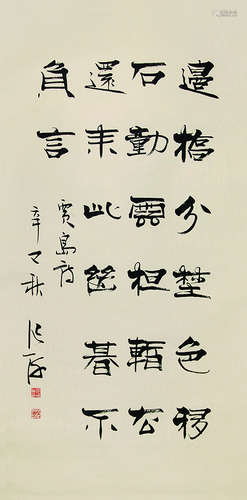 過橋分埜色移
石動雲根暫去
還来此幽朞不
負言
賈島詩
辛巳秋